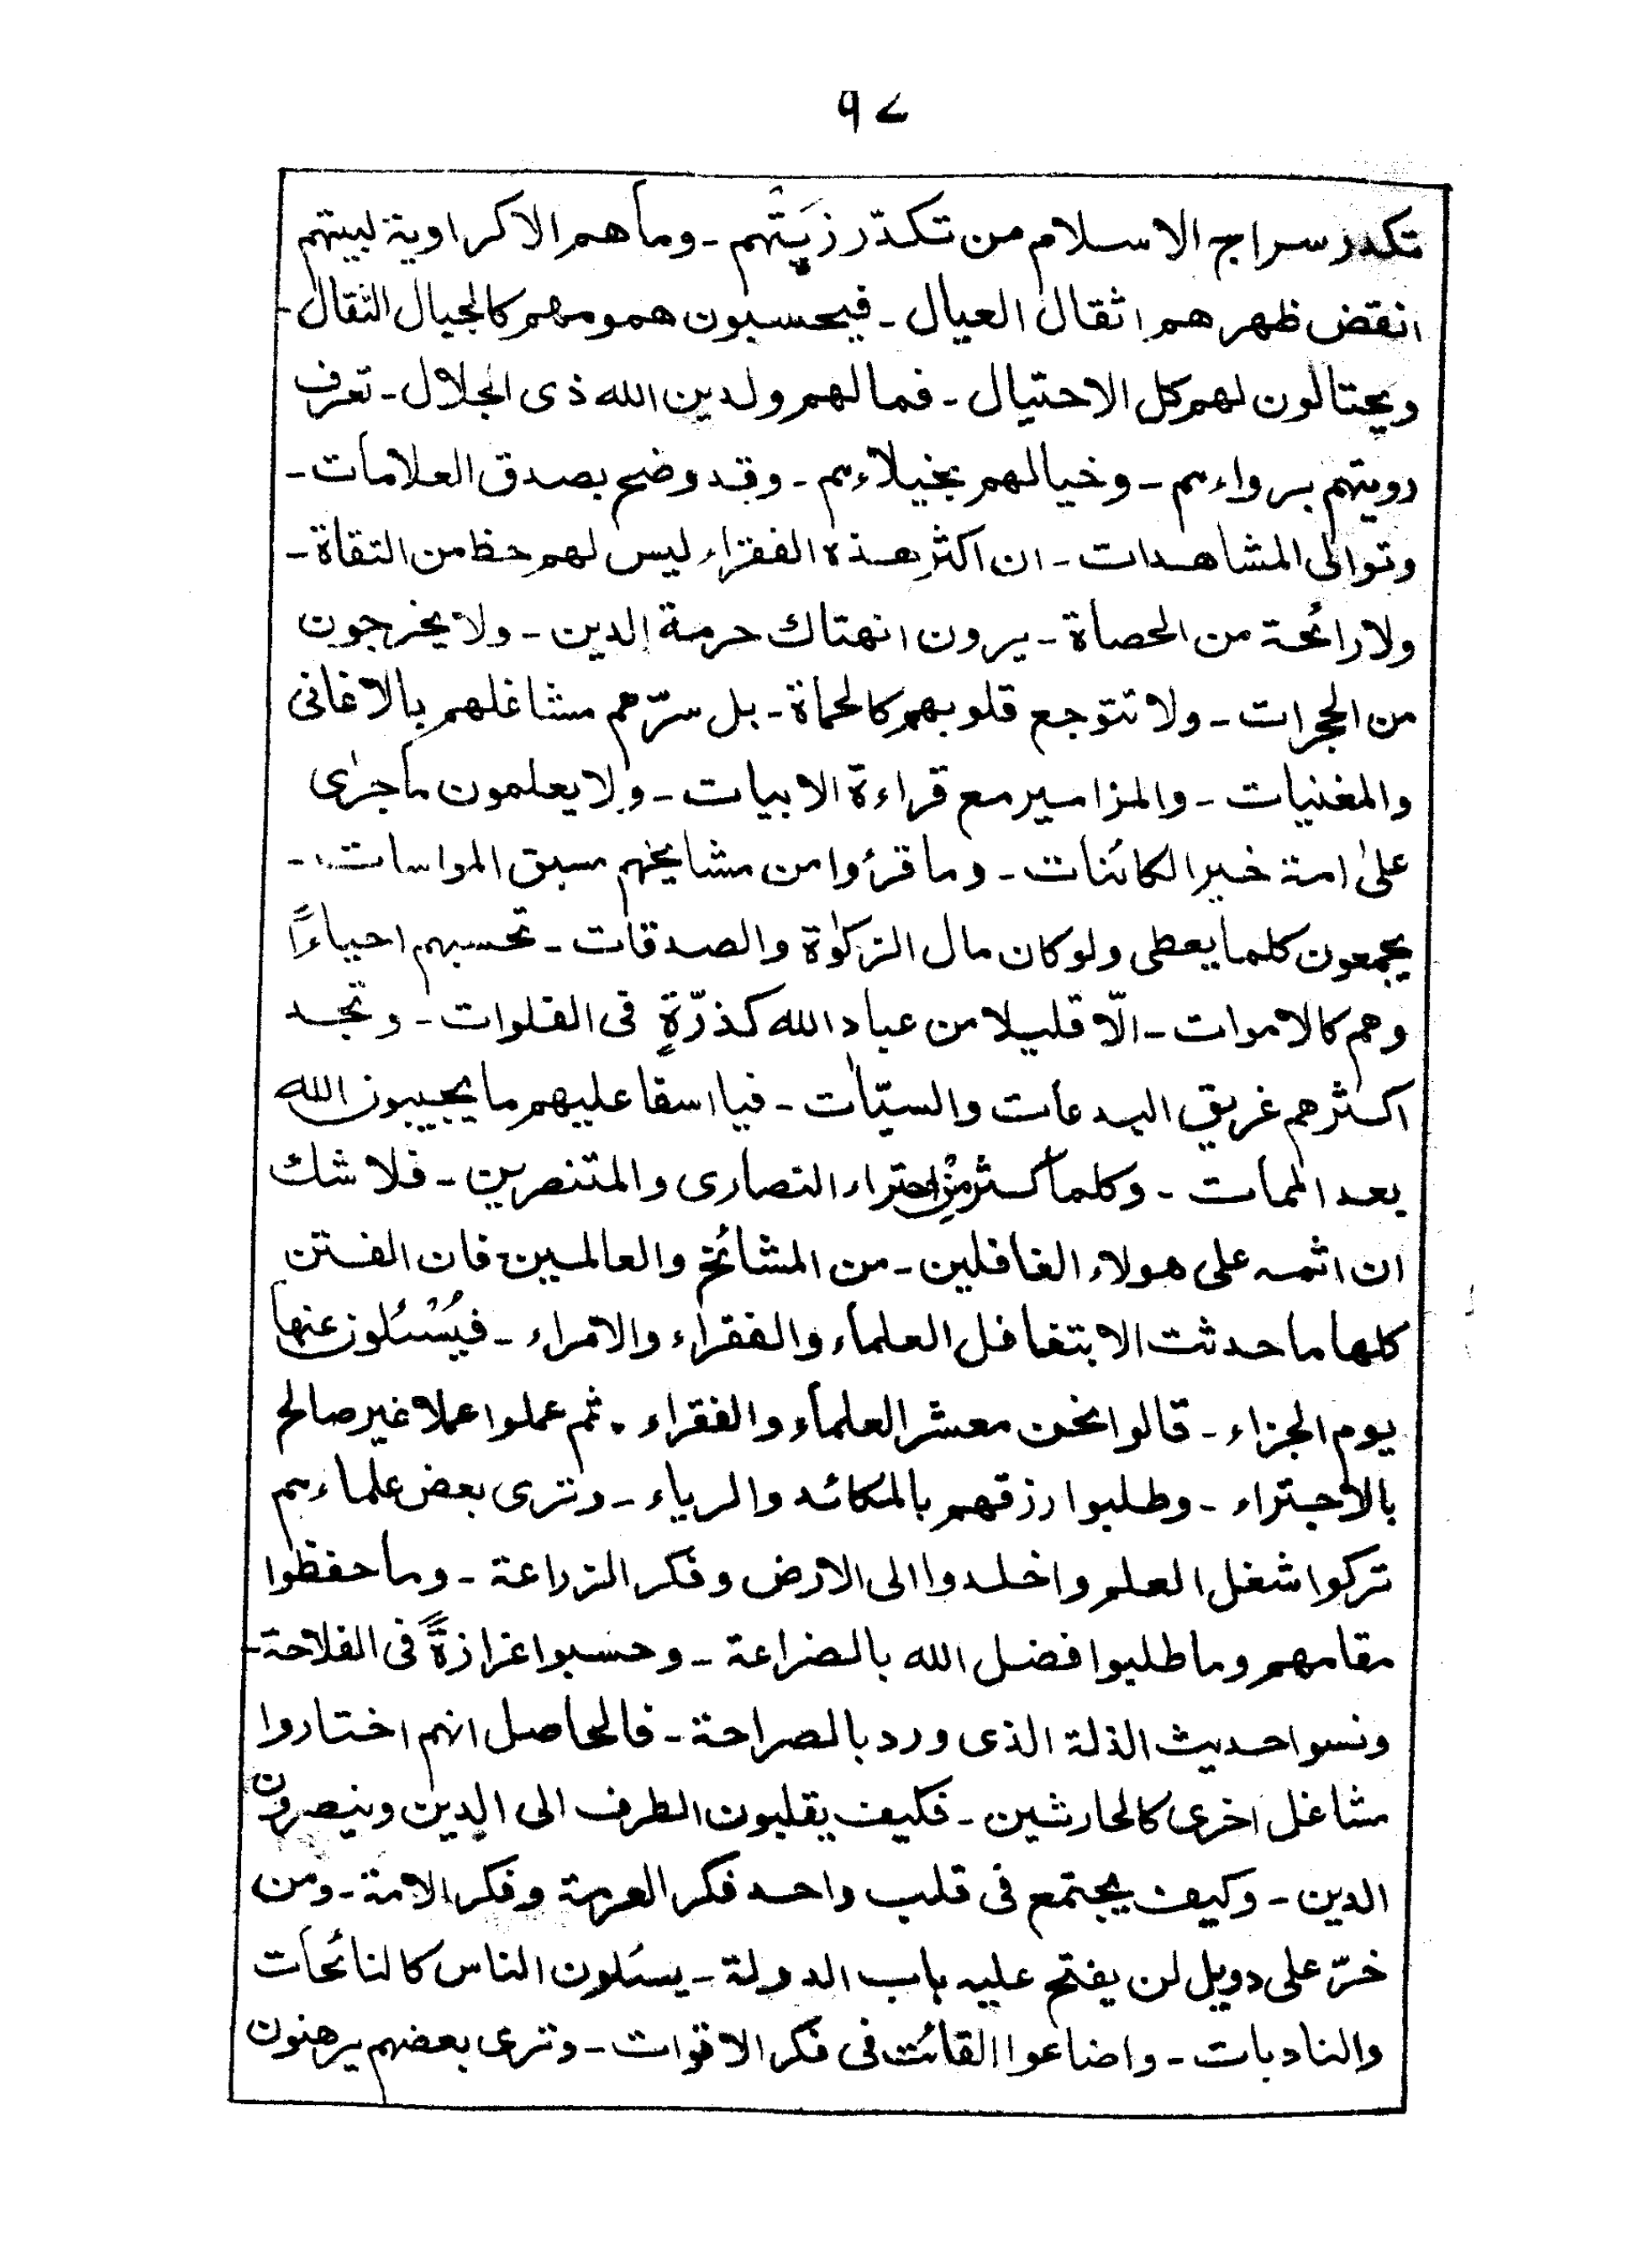 ۹۷
تكدر سراج الاسلام من تكدّر زَيتهم ـ وما هم الا كراوية لبيتهم
انقض ظهرهم اثقال العيال ـ فيحسبون همومهم كالجبال الثقال ـ
ويحتالون لهم كل الاحتيال ـ فما لهم ولدين الله ذى الجلال ـ تعرف
رويتهم برواءهم ـ وخيالهم بخيلاءهم ـ وقد وضح بصدق العلامات ـ
وتوالى المشاهدات ـ ان اكثر هذه الفقراء ليس لهم حظ من التقاة ـ
ولا رائحة من الحصاة ـ يرون انهتاك حرمة الدين ـ ولا يخرجون
من الحجرات ـ ولا تتوجع قلوبهم كالحماة ـ بل سرّهم مشاغلهم بالاغانى
والمغنيات ـ والمزامير مع قراءة الابيات ـ ولا يعلمون ما جرٰى
علٰى امة خير الكائنات ـ وما قرءوا من مشايخهم سبق المواسات ـ
يجمعون كلما يعطى ولو كان مال الزكوٰة والصدقات ـ تحسبهم احياءًا
وهم كالاموات ـ الّا قليلا من عباد الله كذرّةٍ فى الفلوات ـ وتجد
اكثرهم غريق البدعات والسيّاٰت ـ فيا اسفا عليهم ما يجيبون الله
بعد الممات ـ وكلما كثر من اجتراء النصارى والمتنصرين ـ فلا شك
ان اثمه على هولاء الغافلين ـ من المشائخ والعالمين فان الفتن
كلها ما حدثت الا بتغافل العلماء والفقراء والامراء ـ فيُسْئلون عنها
يوم الجزاء ـ قالوا نحن معشر العلماء والفقراء . ثم عملوا عملا غير صالح
بالاجتراء ـ وطلبوا رزقهم بالمكائد والرياء ـ وترى بعض علماءهم
تركوا شغل العلم واخلدوا الى الارض وفكر الزراعة ـ وما حفظوا
مقامهم وما طلبوا فضل الله بالضراعة ـ وحسبوا غزازةً فى الفلاحة ـ
ونسوا حديث الذلة الذى ورد بالصراحة ـ فالحاصل انهم اختاروا
مشاغل اخرى كالحارثين ـ فكيف يقلبون الطرف الى الدين وينصرون
الدين ـ وكيف يجتمع فى قلب واحد فكر العرمة وفكر الامة ـ ومن
خرّ على دويل لن يفتح عليه باب الدولة ـ يسئلون الناس كالنائحات
والنادبات ـ واضاعوا القائت فى فكر الاقوات ـ وترى بعضهم يرهنون